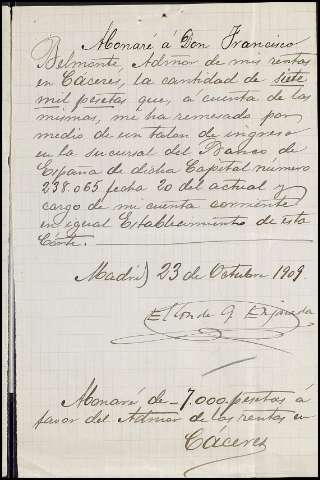 Abonaré á Don Francisco
Belmonte, Admor de mis rentas
en Cáceres, la cantidad de siete
mil pesetas que, á cuenta de las
mismas, me ha remesado por
medio de un talon de ingreso
en la sucursal del Banco de
España de dicha Capital número
238.065 fecha 20 del actual y
cargo de mi cuenta corriente
en igual Establecimiento de esta
Córte.
Madrid 23 de Octubre 1909.
El Conde G
Abonaré de 7.000 pesetas á
favor del Admor de las rentas en
Cáceres